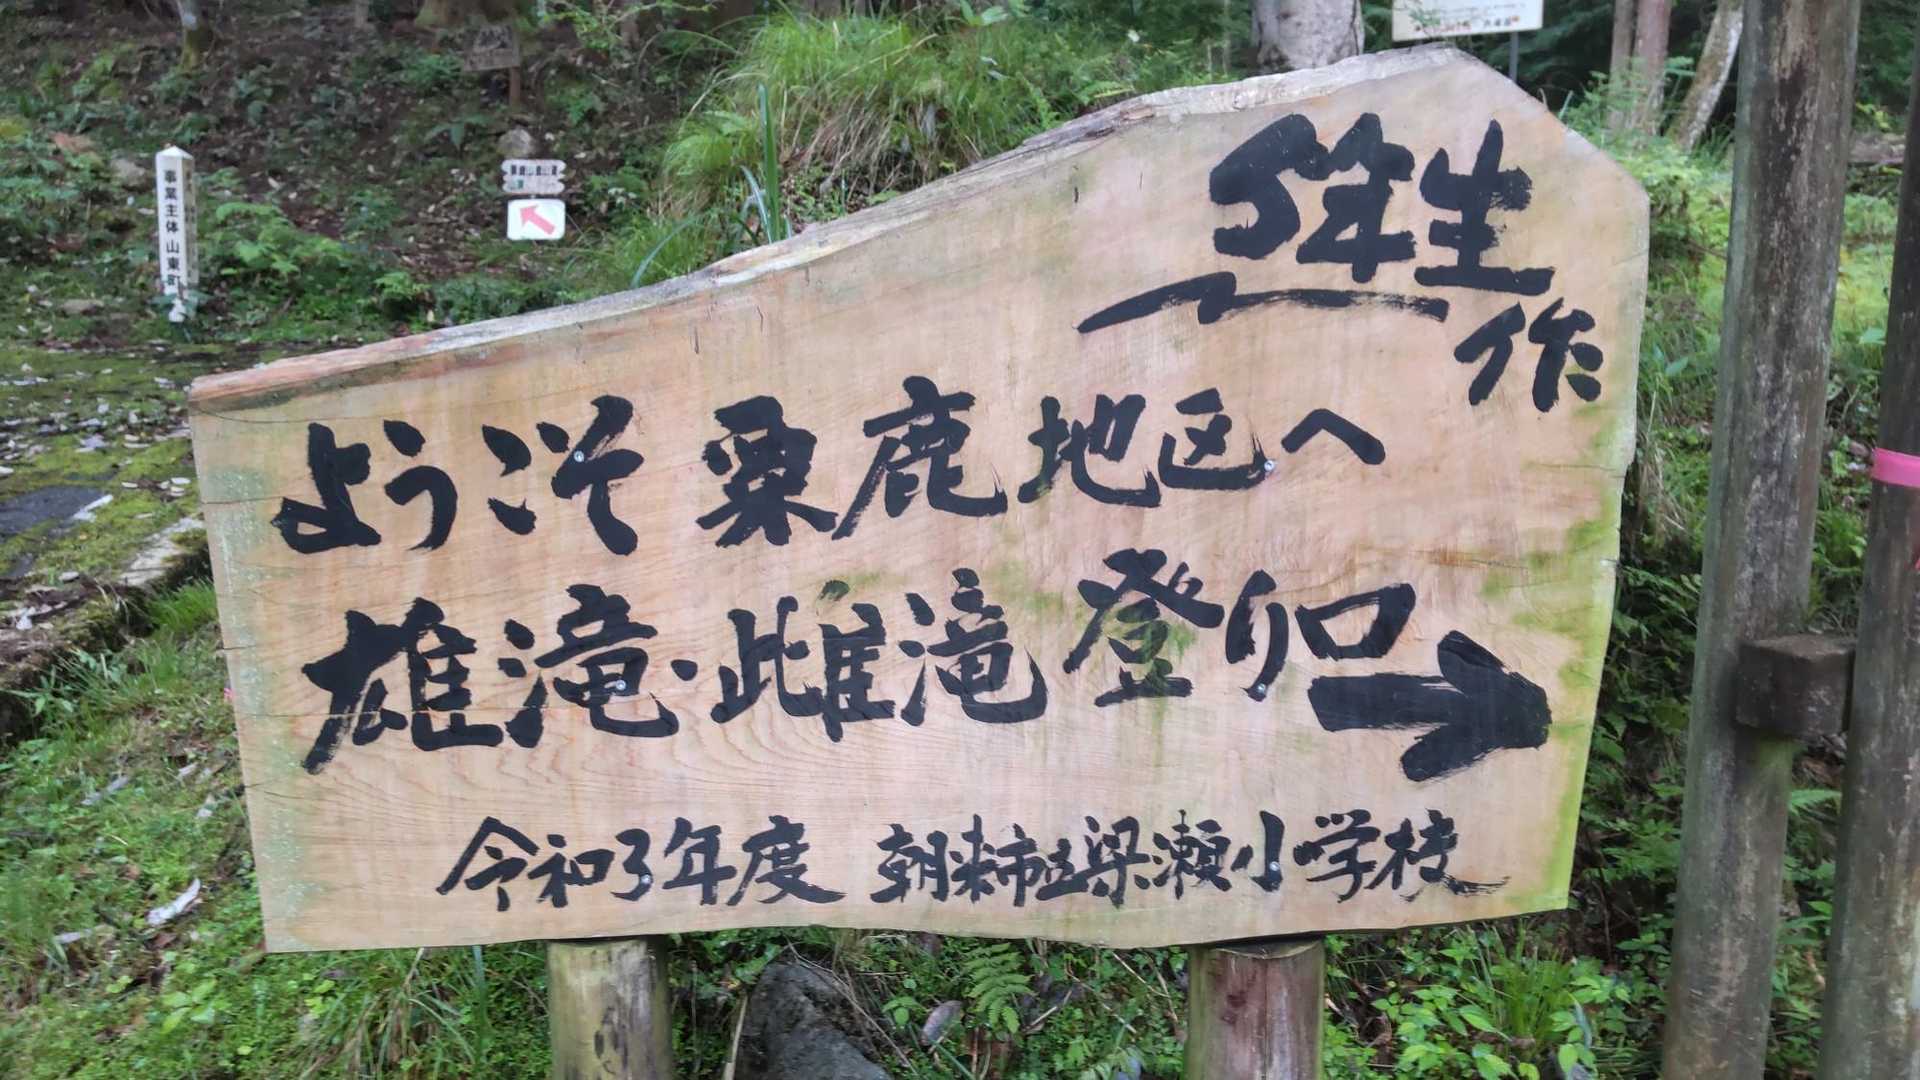 5年生
作
ようこそ 粟鹿地区へ
雄滝・雌滝 登り口
→
令和3年度 朝来市立梁瀬小学校
事業主体山東町